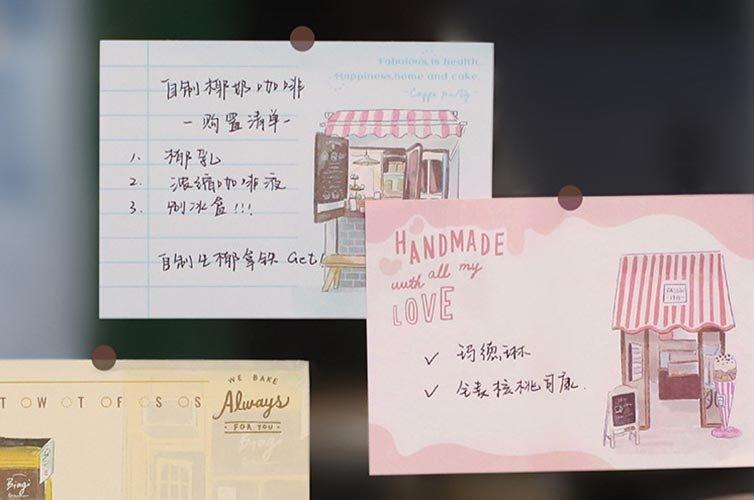 Fabulous, is health.
Happiness, home and cake.
~Coppe party~
自制椰奶咖啡
-购置清单-
1. 椰乳
2. 浓缩咖啡液
3. 制冰盒!!!
自制生椰拿铁 Get!
HANDMADE
with all my
LOVE
✓ 玛德琳
✓ 全麦核桃司康.
WE BAKE
Always
FOR YOU
Bingi
Bingi